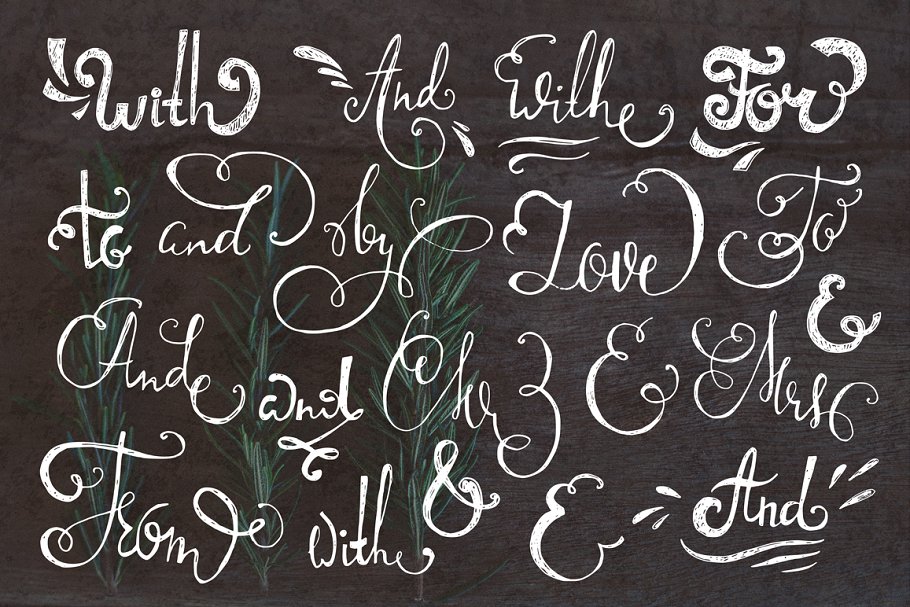 with And With For
to and by Love To
&
And and Mr & Mrs
From with & & And